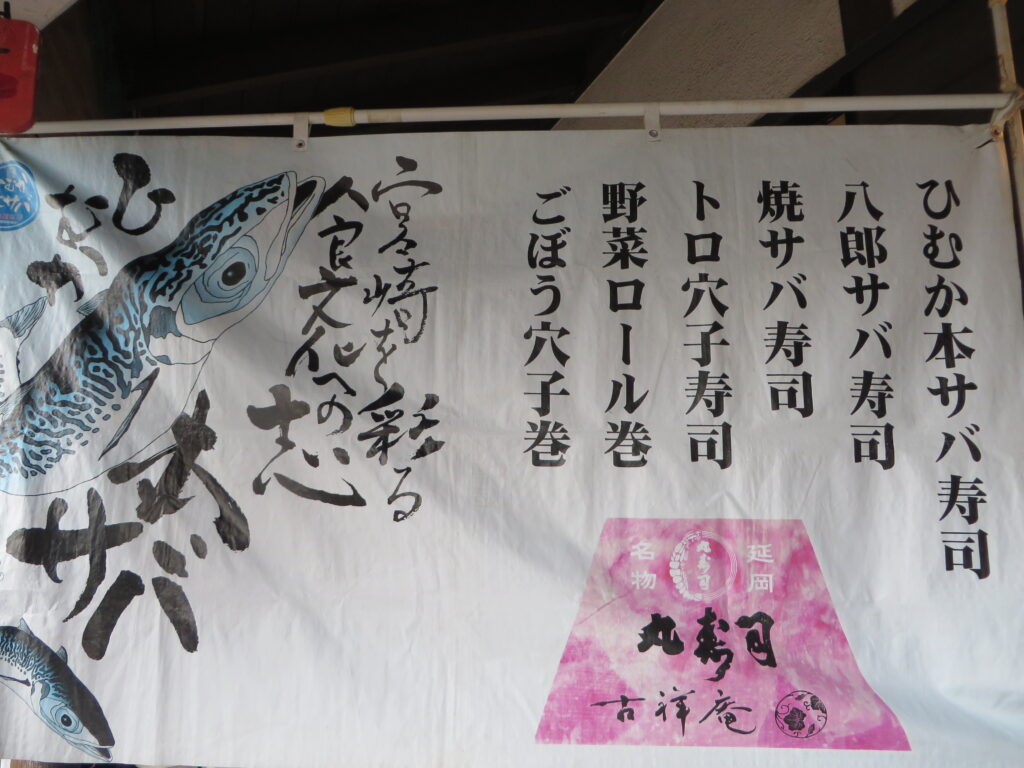 ひむか本サバ寿司
八郎サバ寿司
焼サバ寿司
トロ穴子寿司
野菜ロール巻
ごぼう穴子巻
延岡
名物
丸寿司
丸寿司
吉祥庵
宮崎を彩る
食文化への
志
ひむか
本サバ